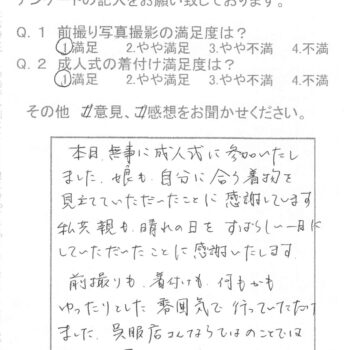 アンケートの記入をお願い致しております。
Q.1 前撮り写真撮影の満足度は?
①満足 2.やや満足 3.やや不満 4.不満
Q.2 成人式の着付け満足度は?
①満足 2.やや満足 3.やや不満 4.不満
その他 ご意見、ご感想をお聞かせください。
本日、無事に成人式に参加いたし
ました。娘も自分に合う着物を
見立てていただいたことに感謝しています
私共親も、晴れの日をすばらしい一日に
していただいたことに感謝いたします。
前撮りも、着付けも、何もかも
ゆったりとした雰囲気で行っていただけ
ました。呉服店さんならではのことでは